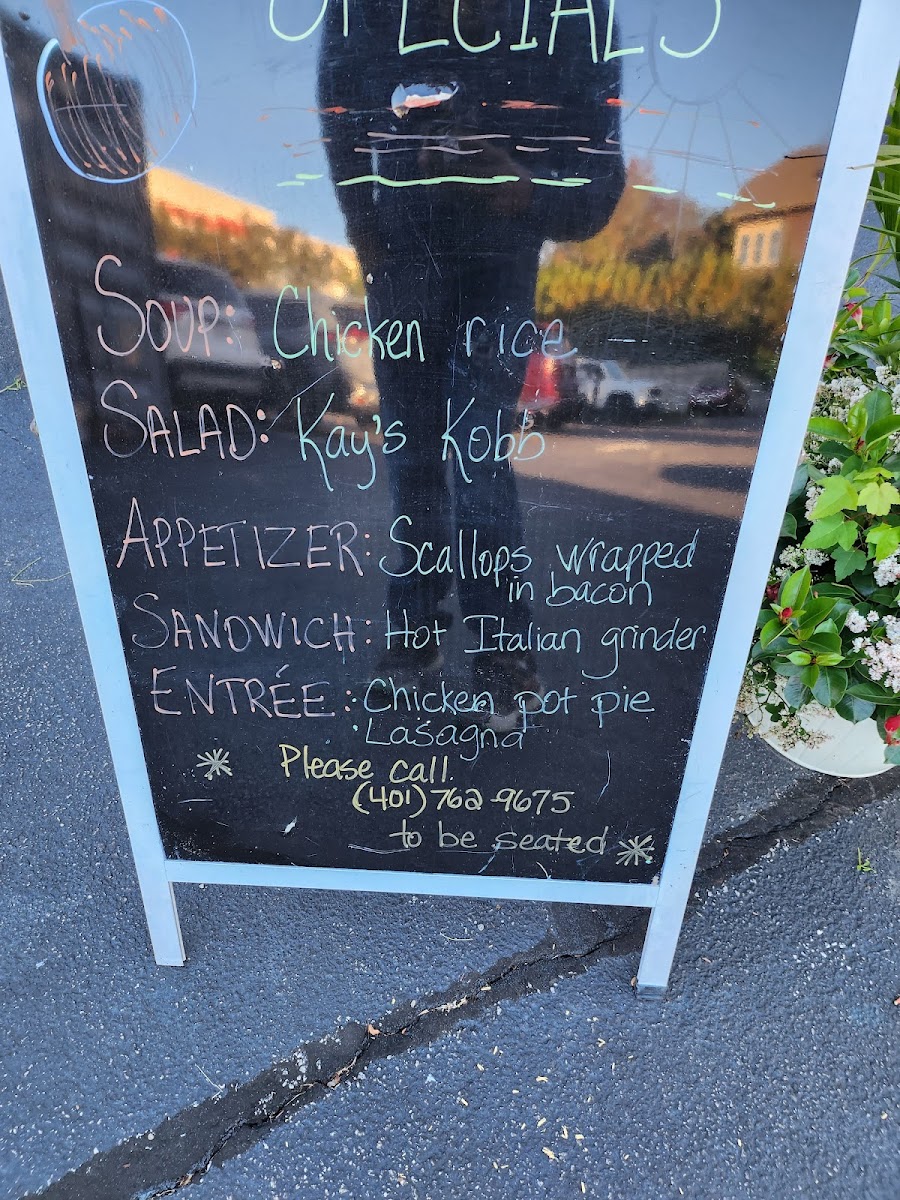 SPECIALS
SOUP: Chicken rice
SALAD: Kay's Kobb
APPETIZER: Scallops wrapped
in bacon
SANDWICH: Hot Italian grinder
ENTRÉE: Chicken pot pie
Lasagna
* Please call
(401) 762-9675
to be seated *